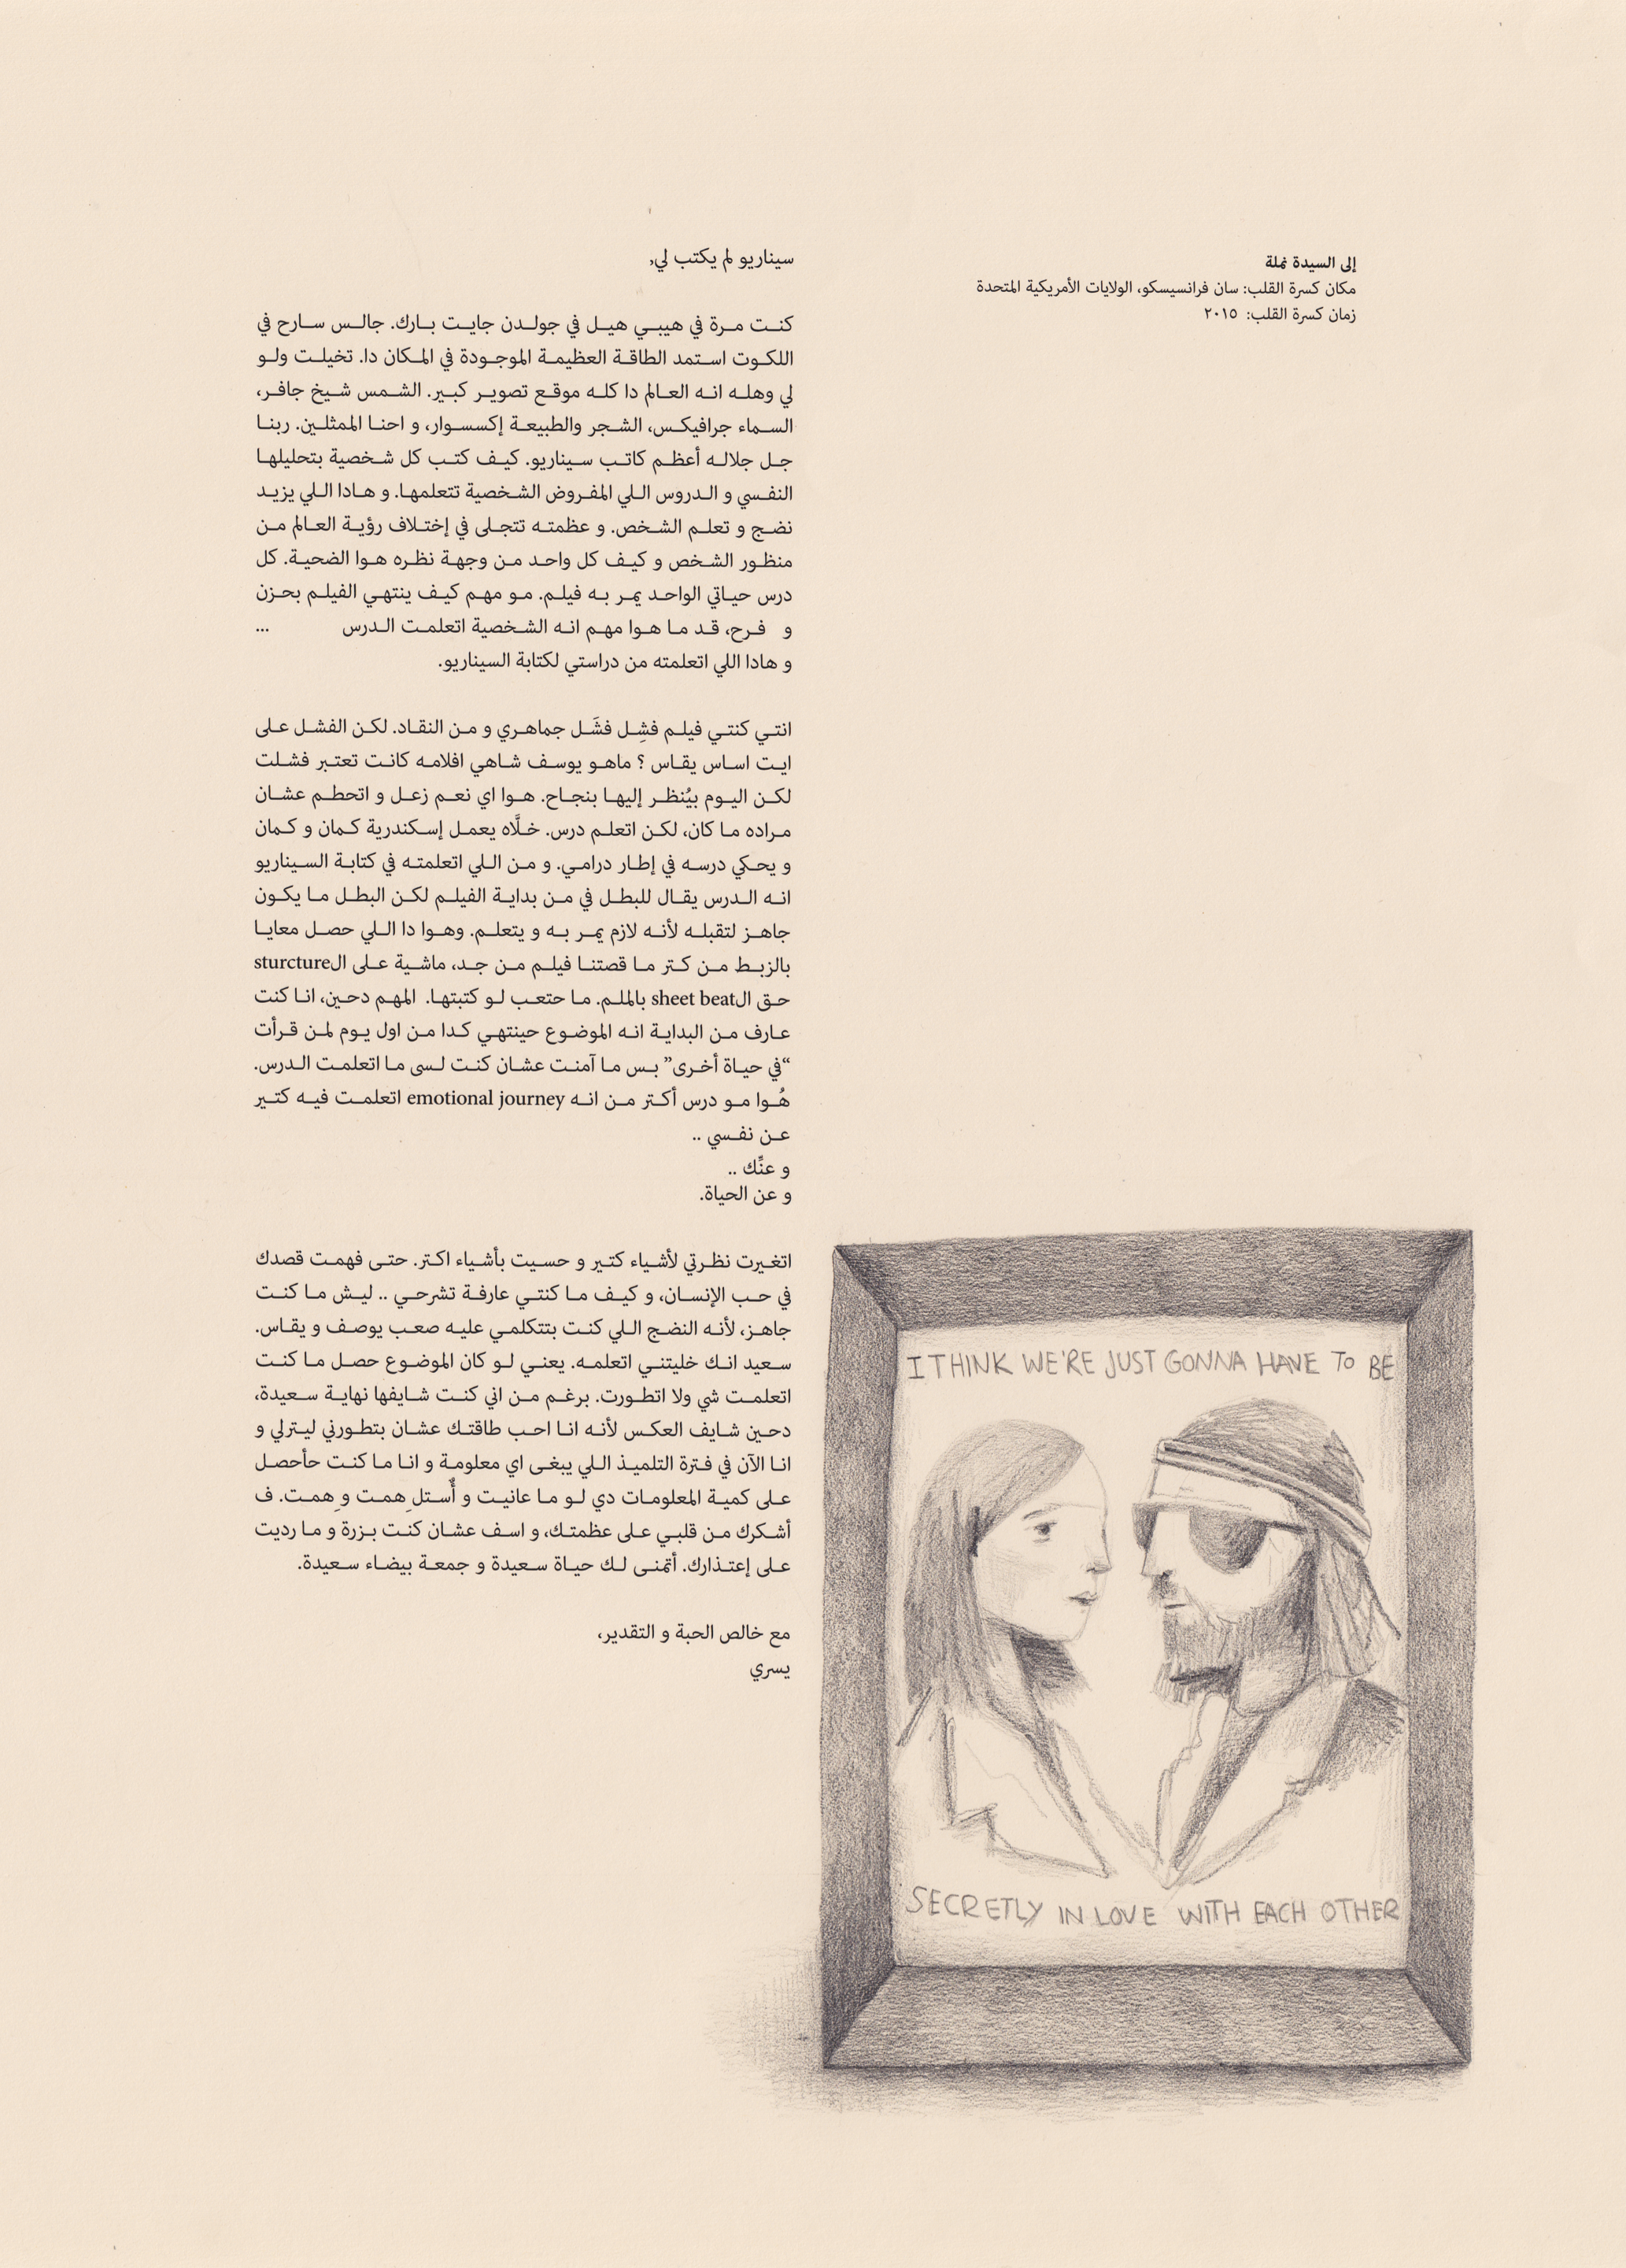 إلى السيدة نملة
مكان كسرة القلب: سان فرانسيسكو، الولايات الأمريكية المتحدة
زمان كسرة القلب: ٢٠١٥
سيناريو لم يكتب لي,
كنت مرة في هيبي هيل في جولدن جايت بارك. جالس سارح في
اللكوت استمد الطاقة العظيمة الموجودة في المكان دا. تخيلت ولو
لي وهله انه العالم دا كله موقع تصوير كبير. الشمس شيخ جافر،
السماء جرافيكس، الشجر والطبيعة إكسسوار، و احنا الممثلين. ربنا
جل جلاله أعظم كاتب سيناريو. كيف كتب كل شخصية بتحليلها
النفسي و الدروس اللي المفروض الشخصية تتعلمها. و هادا اللي يزيد
نضج و تعلم الشخص. و عظمته تتجلى في إختلاف رؤية العالم من
منظور الشخص و كيف كل واحد من وجهة نظره هوا الضحية. كل
درس حياتي الواحد يمر به فيلم. مو مهم كيف ينتهي الفيلم بحزن
و فرح، قد ما هوا مهم انه الشخصية اتعلمت الدرس ...
و هادا اللي اتعلمته من دراستي لكتابة السيناريو.
انتي كنتي فيلم فشِل فشَل جماهري و من النقاد. لكن الفشل على
ايت اساس يقاس ؟ ماهو يوسف شاهي افلامه كانت تعتبر فشلت
لكن اليوم بيُنظر إليها بنجاح. هوا اي نعم زعل و اتحطم عشان
مراده ما كان، لكن اتعلم درس. خلَّاه يعمل إسكندرية كمان و كمان
و يحكي درسه في إطار درامي. و من اللي اتعلمته في كتابة السيناريو
انه الدرس يقال للبطل في من بداية الفيلم لكن البطل ما يكون
جاهز لتقبله لأنه لازم يمر به و يتعلم. وهوا دا اللي حصل معايا
بالزبط من كتر ما قصتنا فيلم من جد، ماشية على الsturcture
حق الsheet beat بالملم. ما حتعب لو كتبتها. المهم دحين، انا كنت
عارف من البداية انه الموضوع حينتهي كدا من اول يوم لمن قرأت
“في حياة أخرى” بس ما آمنت عشان كنت لسى ما اتعلمت الدرس.
هُوا مو درس أكتر من انه emotional journey اتعلمت فيه كتير
عن نفسي ..
و عنِّك ..
و عن الحياة.
اتغيرت نظرتي لأشياء كتير و حسيت بأشياء اكتر. حتى فهمت قصدك
في حب الإنسان، و كيف ما كنتي عارفة تشرحي .. ليش ما كنت
جاهز، لأنه النضج اللي كنت بتتكلمي عليه صعب يوصف و يقاس.
سعيد انك خليتني اتعلمه. يعني لو كان الموضوع حصل ما كنت
اتعلمت شي ولا اتطورت. برغم من اني كنت شايفها نهاية سعيدة،
دحين شايف العكس لأنه انا احب طاقتك عشان بتطورني ليترلي و
انا الآن في فترة التلميذ اللي يبغى اي معلومة و انا ما كنت حأحصل
على كمية المعلومات دي لو ما عانيت و أُستلهِمت وهِمت. ف
أشكرك من قلبي على عظمتك، و اسف عشان كنت بزرة و ما رديت
على إعتذارك. أتمنى لك حياة سعيدة و جمعة بيضاء سعيدة.
مع خالص الحبة و التقدير،
يسري
I THINK WE'RE JUST GONNA HAVE TO BE
SECRETLY IN LOVE WITH EACH OTHER